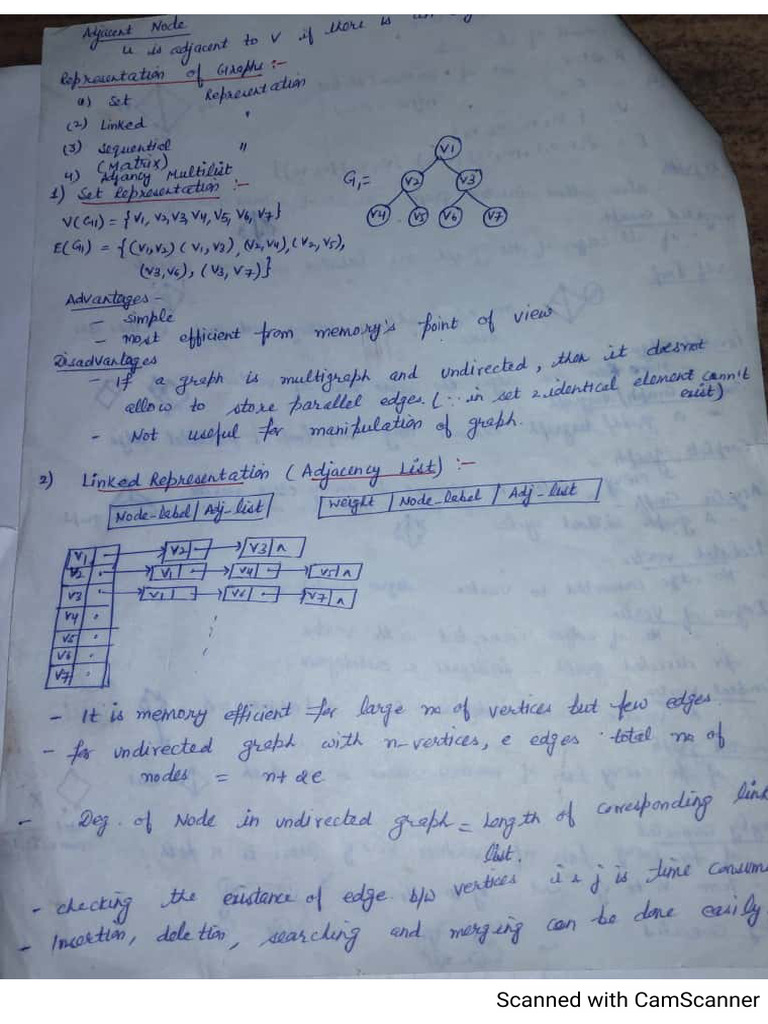 Adjacent Node
u is adjacent to v if there is
Representation of Graphs :-
a) Set Representation
(2) Linked "
(3) Sequential "
(Matrix)
4) Adjancy Multilist
1) Set Representation :-
V(G1) = {V1, V2, V3, V4, V5, V6, V7}
E(G1) = {(V1,V2) (V1,V3), (V2,V4), (V2,V5),
(V3,V6), (V3,V7)}
G1 =
V1
V2 V3
V4 V5 V6 V7
Advantages -
- simple
- most efficient from memory's point of view
Disadvantages
- If a graph is multigraph and undirected, then it doesnot
allow to store parallel edges. (∵ in set 2 identical element cann't
exist)
- Not useful for manipulation of graph.
2) Linked Representation (Adjacency List) :-
Node-label | Adj-list
Weight | Node-label | Adj-list
V1 V2 V3 ^
V2 V1 V4 V5 ^
V3 V1 V6 V7 ^
V4
V5
V6
V7
- It is memory efficient for large no of vertices but few edges.
- for undirected graph with n-vertices, e edges total no of
nodes = n+2e
- Deg. of Node in undirected graph = Length of corresponding link
list.
- checking the existance of edge b/w vertices i & j is time consum
- Insertion, deletion, searching and merging can be done easily
Scanned with CamScanner